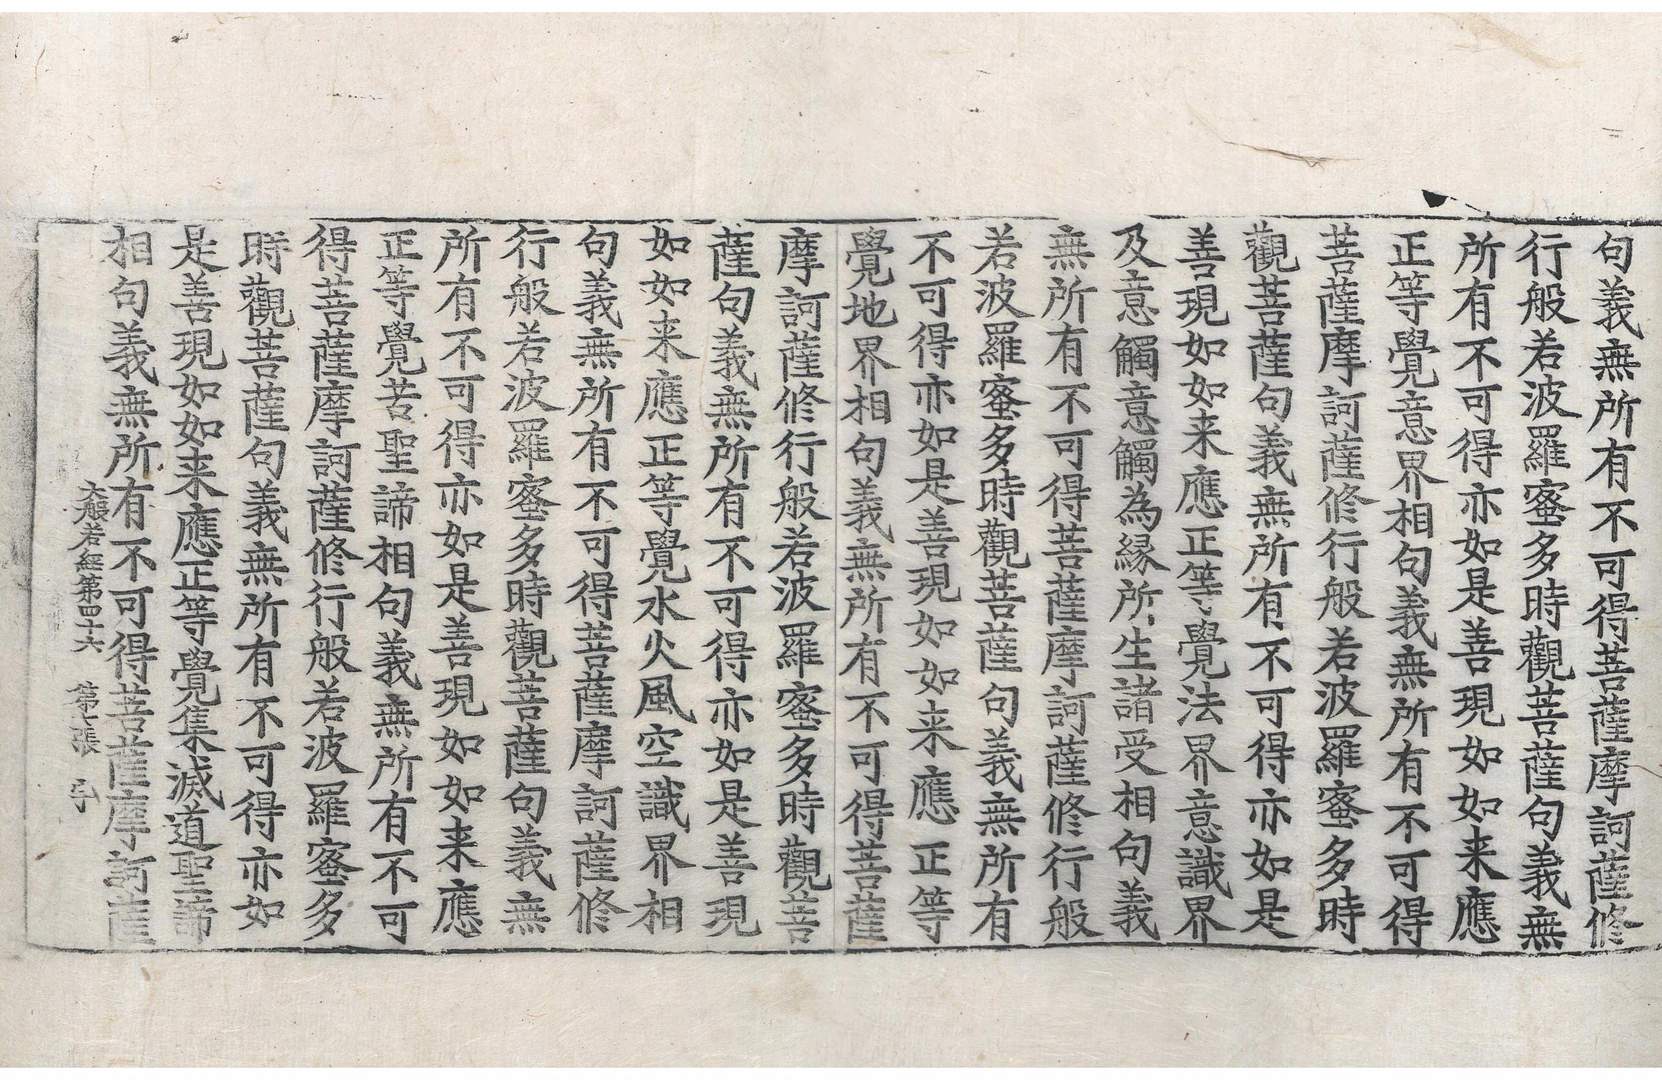 句義無所有不可得菩薩摩訶薩修
行般若波羅蜜多時觀菩薩句義無
所有不可得亦如是善現如如来應
正等覺意界相句義無所有不可得
菩薩摩訶薩修行般若波羅蜜多時
觀菩薩句義無所有不可得亦如是
善現如如来應正等覺法界意識界
及意觸意觸為緣所生諸受相句義
無所有不可得菩薩摩訶薩修行般
若波羅蜜多時觀菩薩句義無所有
不可得亦如是善現如如来應正等
覺地界相句義無所有不可得菩薩
摩訶薩修行般若波羅蜜多時觀菩
薩句義無所有不可得亦如是善現
如如来應正等覺水火風空識界相
句義無所有不可得菩薩摩訶薩修
行般若波羅蜜多時觀菩薩句義無
所有不可得亦如是善現如如来應
正等覺苦聖諦相句義無所有不可
得菩薩摩訶薩修行般若波羅蜜多
時觀菩薩句義無所有不可得亦如
是善現如如来應正等覺集滅道聖諦
相句義無所有不可得菩薩摩訶薩
大般若經第四十六 第七張